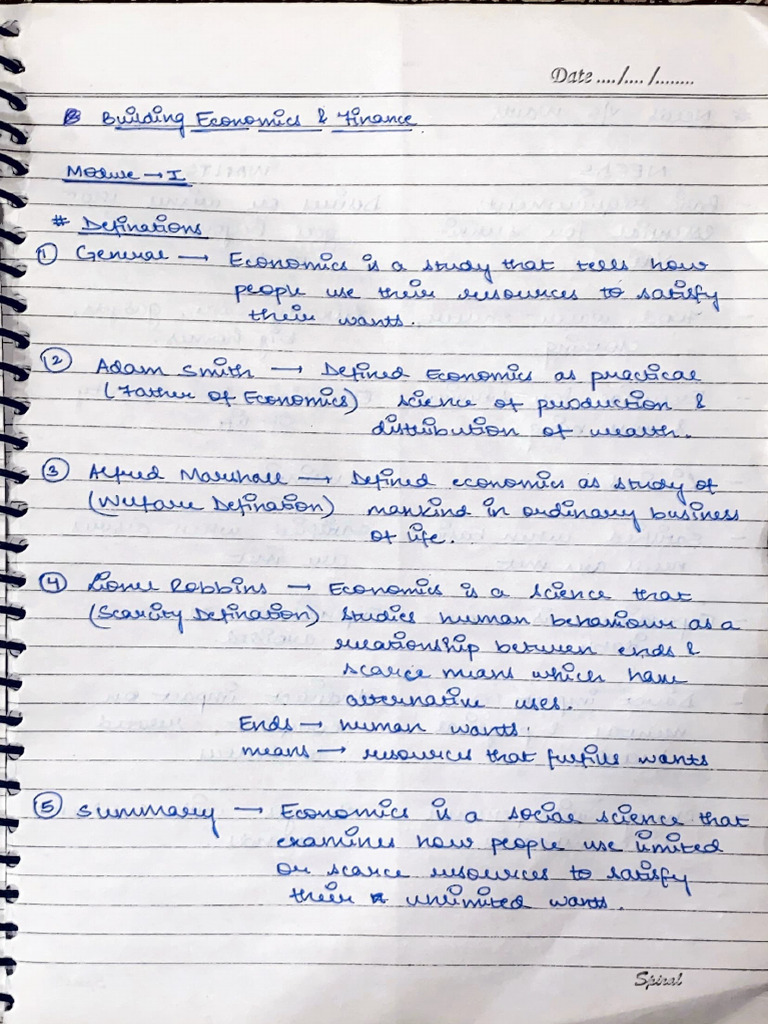 Date ..../..../........
Building Economics & Finance
Module → I
# Definations
① General → Economics is a study that tells how
people use their resources to satisfy
their wants.
② Adam Smith → Defined Economics as practical
(Father of Economics) science of production &
distribution of wealth.
③ Alfred Marshall → Defined economics as study of
(Welfare Defination) mankind in ordinary business
of life.
④ Lionel Robbins → Economics is a science that
(Scarcity Defination) studies human behaviour as a
relationship between ends &
scarce means which have
alternative uses.
Ends → human wants.
means → resources that fulfill wants
⑤ Summary → Economics is a social science that
examines how people use limited
or scarce resources to satisfy
their unlimited wants.
Spiral